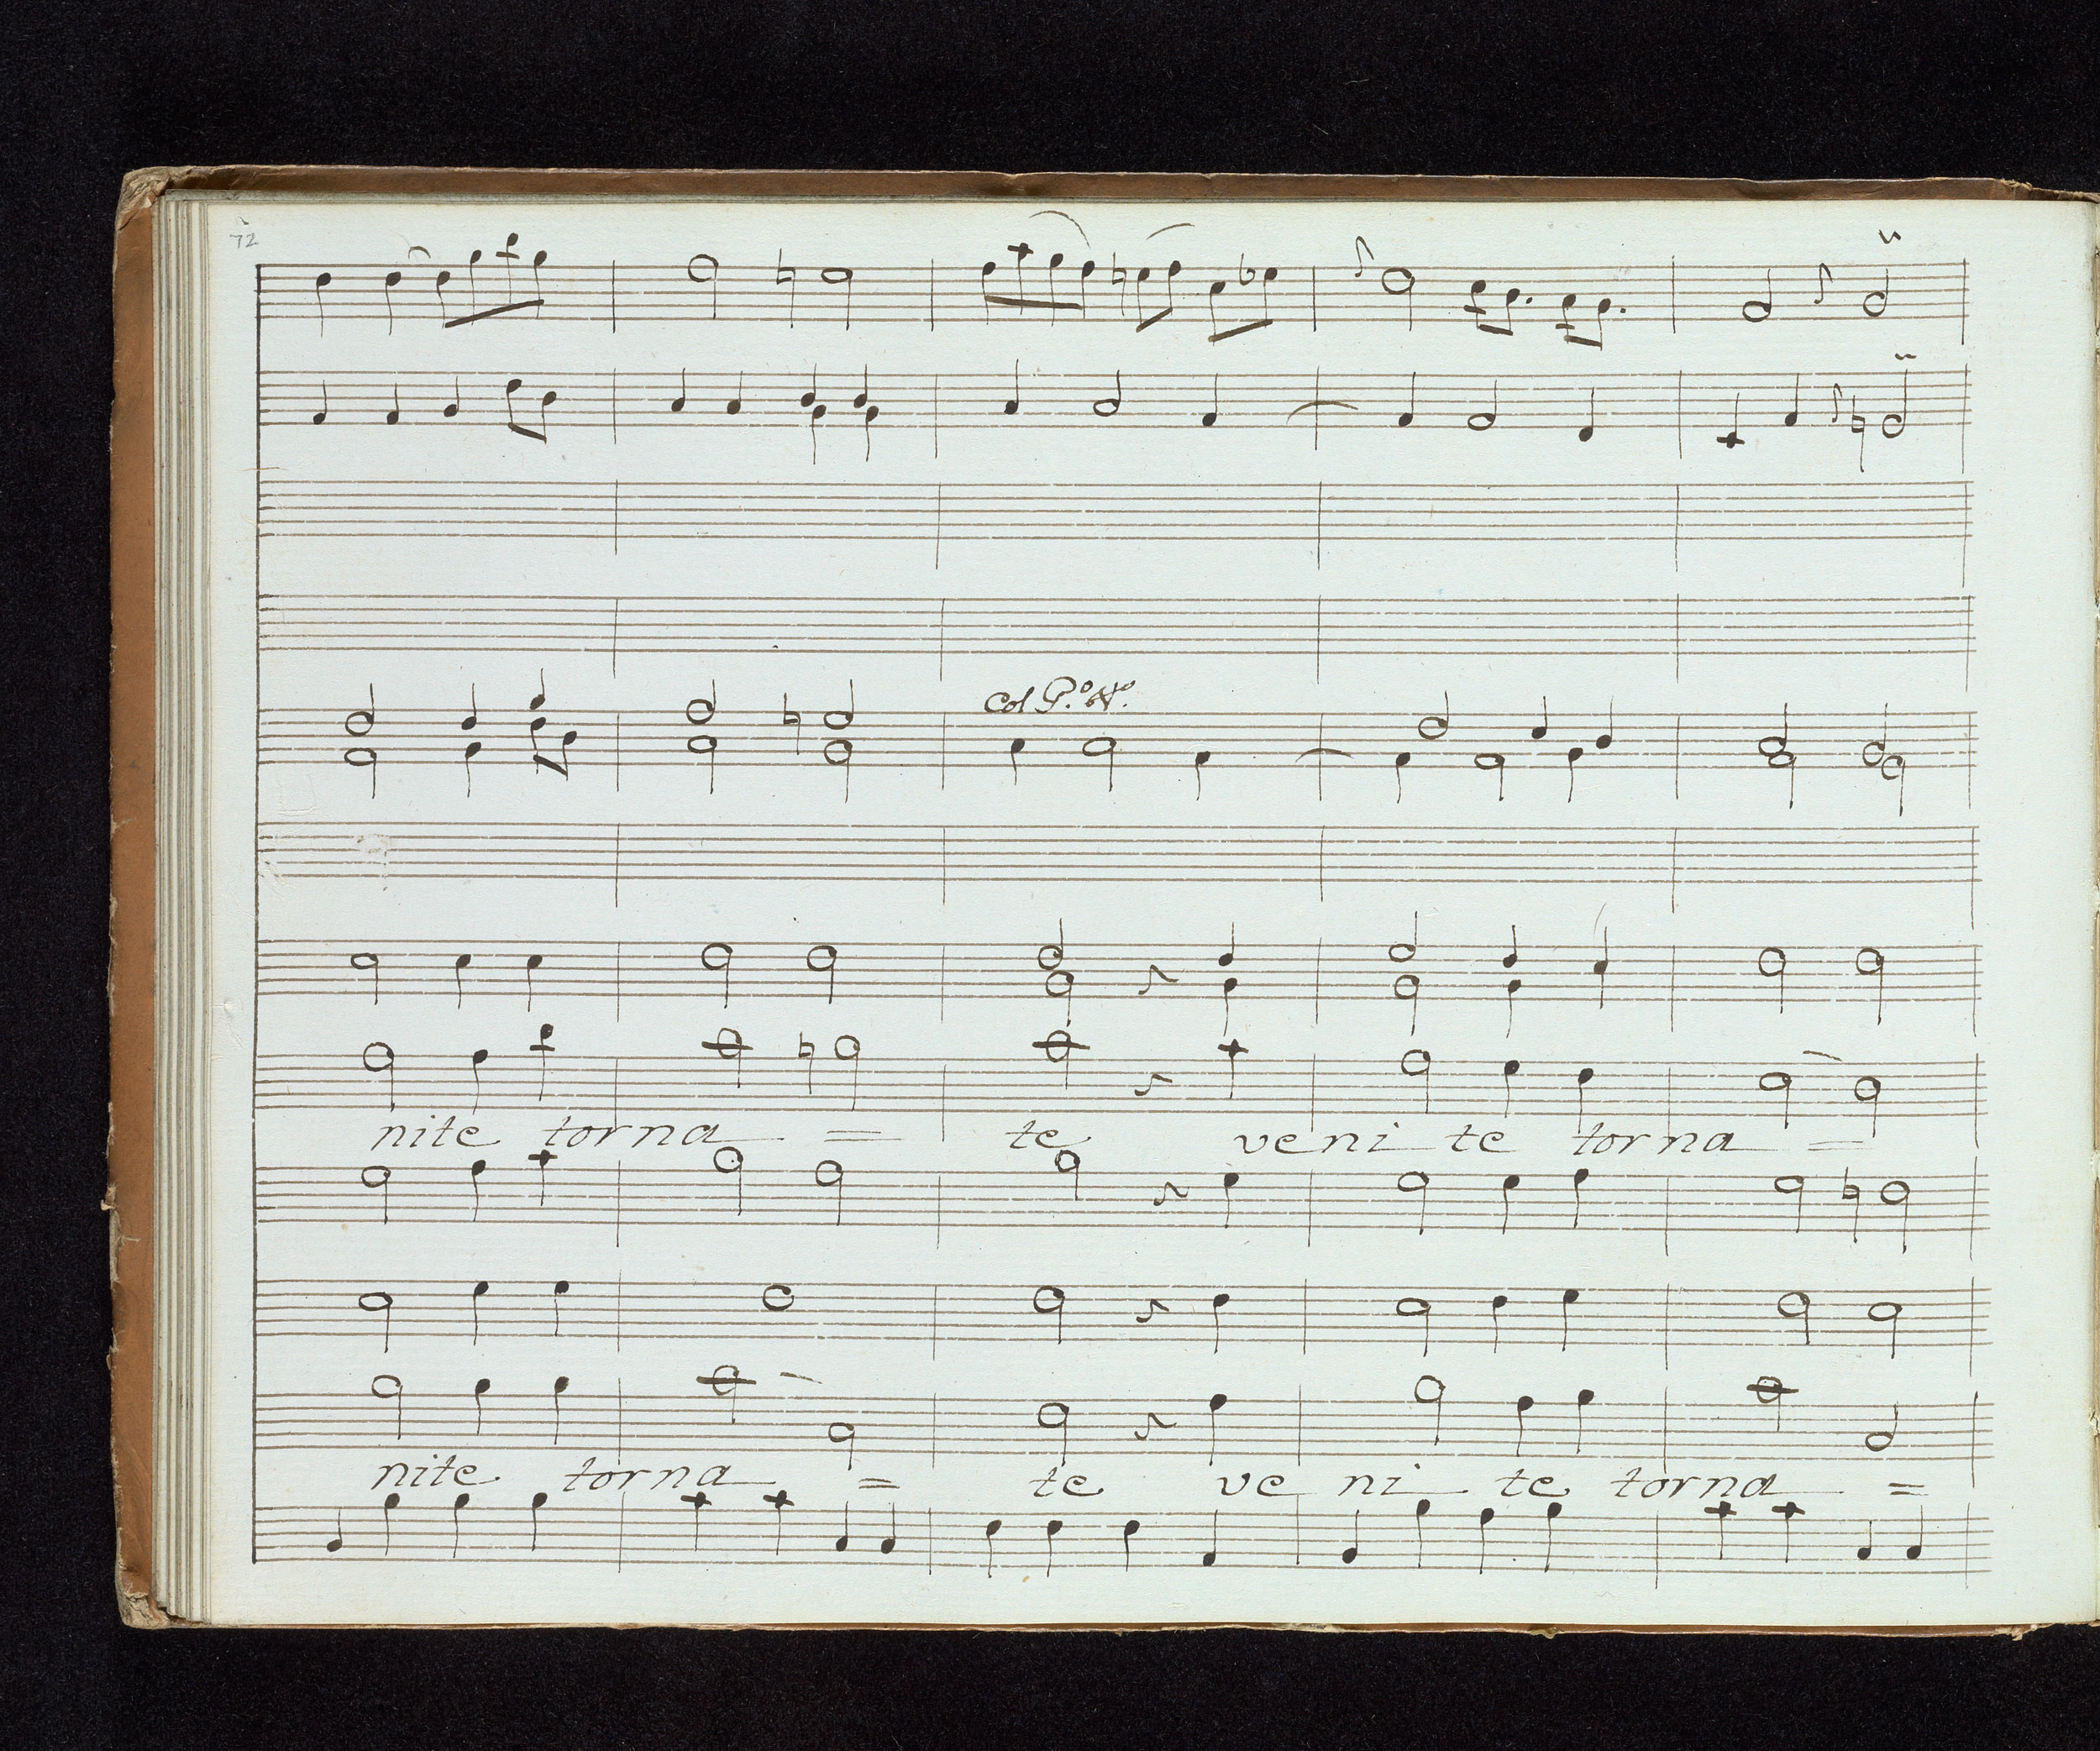 72
Col P.º V.º
nite torna = te veni te torna =
nite torna = te ve ni te torna =